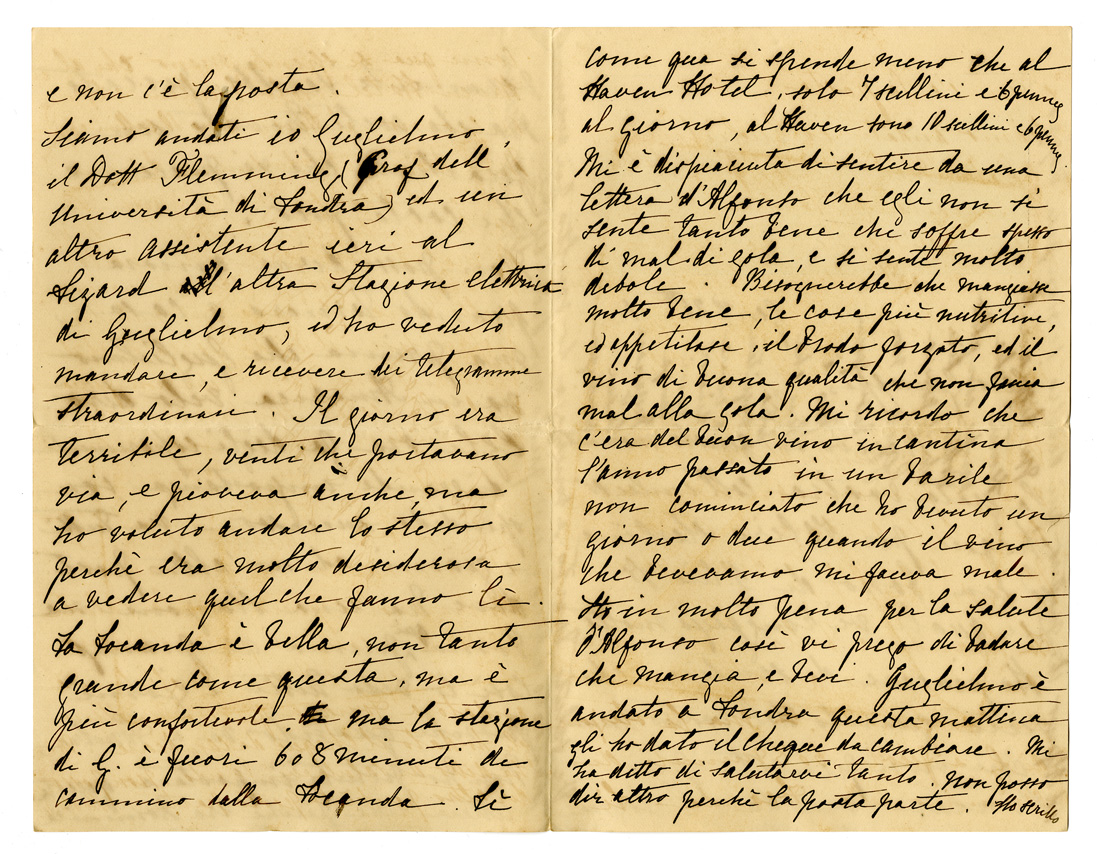 e non c'è la posta.
Siamo andati io Guglielmo,
il Dott Flemming (Prof dell'
Università di Londra) ed un
altro assistente ieri al
Lizard all'altra Stazione elettrica
di Guglielmo, ed ho veduto
mandare, e ricevere dei telegrammi
straordinari. Il giorno era
terribile, venti che portavano
via, e pioveva anche, ma
ho voluto andare lo stesso
perchè era molto desiderosa
a vedere quel che fanno lì.
La Locanda è bella, non tanto
grande come questa, ma è
più confortevole ma la stazione
di G. è fuori 6 o 8 minuti di
cammino dalla Locanda. Lì
come qua si spende meno che al
Haven Hotel, solo 7 scellini e 6 penny
al giorno, al Haven sono 10 scellini e 6 penny.
Mi è dispiaciuta di sentire da una
lettera d'Alfonso che egli non si
sente tanto bene che soffre spesso
di mal di gola, e si sente molto
debole. Bisognerebbe che mangiasse
molto bene, le cose più nutritive,
ed appetitose, il brodo forzato, ed il
vino di buona qualità che non faccia
mal alla gola. Mi ricordo che
c'era del buon vino in cantina
l'anno passato in un barile
non cominciato che ho bevuto un
giorno o due quando il vino
che bevevamo mi faceva male.
Sto in molto pena per la salute
d'Alfonso così vi prego di badare
che mangia, e bevi. Guglielmo è
andato a Londra questa mattina
gli ho dato il cheque da cambiare. Mi
ha detto di salutarvi tanto. Non posso
dir altro perchè la posta parte. Ho scritto